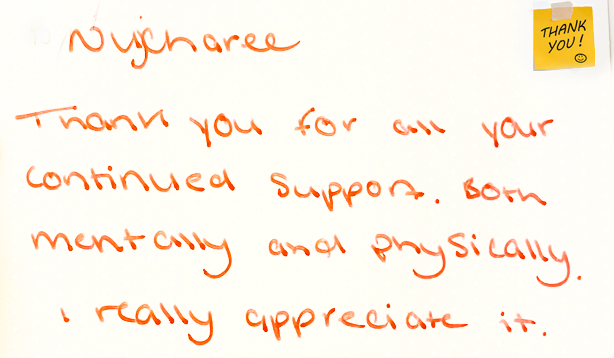 Nujcharee
THANK
YOU!
Thank you for all your
continued support. Both
mentally and physically.
I really appreciate it.